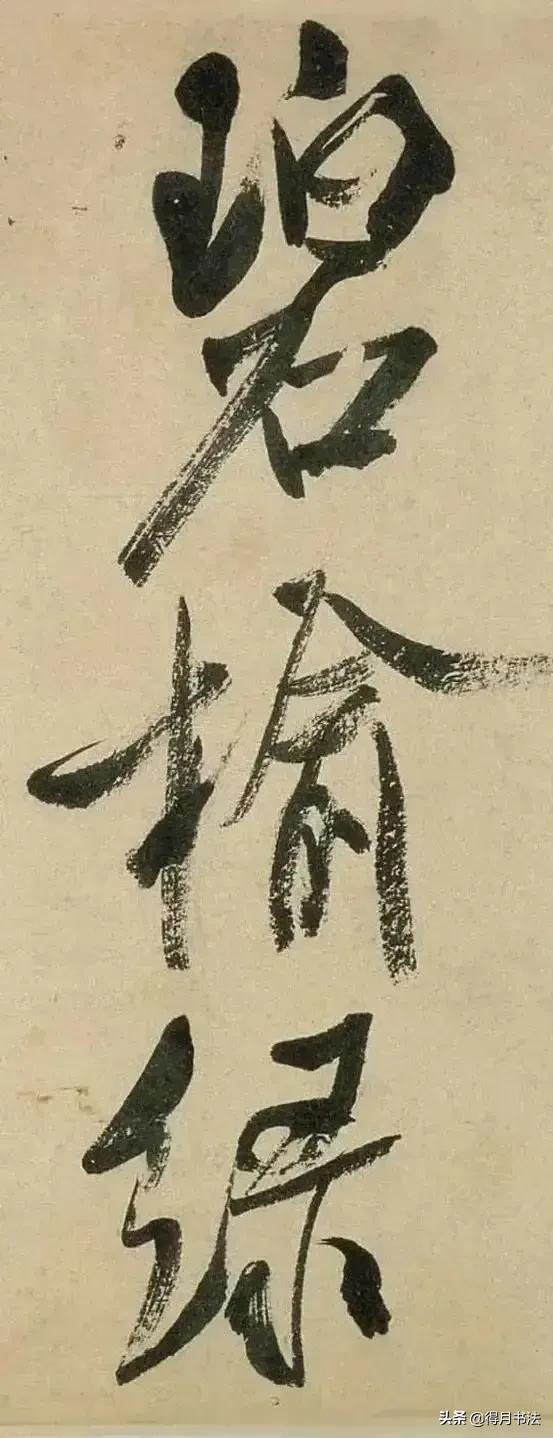 碧榆绿
头条 @得月书法